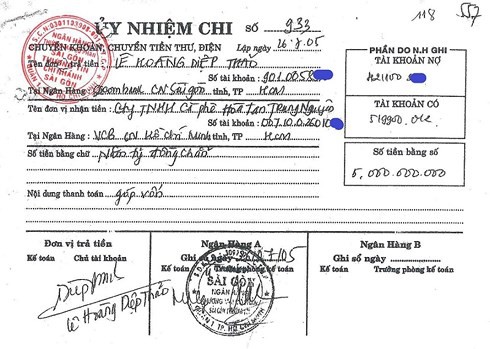 118 557
ỦY NHIỆM CHI SỐ 933
CHUYỂN KHOẢN, CHUYỂN TIỀN THƯ, ĐIỆN Lập ngày 26.7.05
PHẦN DO N.H GHI
Tên đơn vị trả tiền : LÊ HOÀNG DIỆP THẢO
TÀI KHOẢN NỢ
Số tài khoản : 901.0058
Tại Ngân Hàng : CN Sài gòn tỉnh, TP HCM
TÀI KHOẢN CÓ
Tên đơn vị nhận tiền : Cty TNHH Cà phê Hòa Tan Trung Nguyên
519900.
Số tài khoản : 007.10.0.26010
Tại Ngân Hàng : VCB CN Hồ Chí Minh tỉnh, TP HCM
Số tiền bằng chữ Năm tỷ đồng chẵn
Số tiền bằng số
5,000.000.000
Nội dung thanh toán góp vốn
Đơn vị trả tiền
Kế toán Chủ tài khoản
Lê Hoàng Diệp Thảo
Ngân Hàng A
Ghi sổ ngày
Kế toán Trưởng phòng kế toán
SÀI GÒN
Ngân Hàng B
Ghi sổ ngày
Kế toán Trưởng phòng kế toán
NGÂN HÀNG
SÀI GÒN
THƯƠNG TÍN
CHI NHÁNH
SÀI GÒN